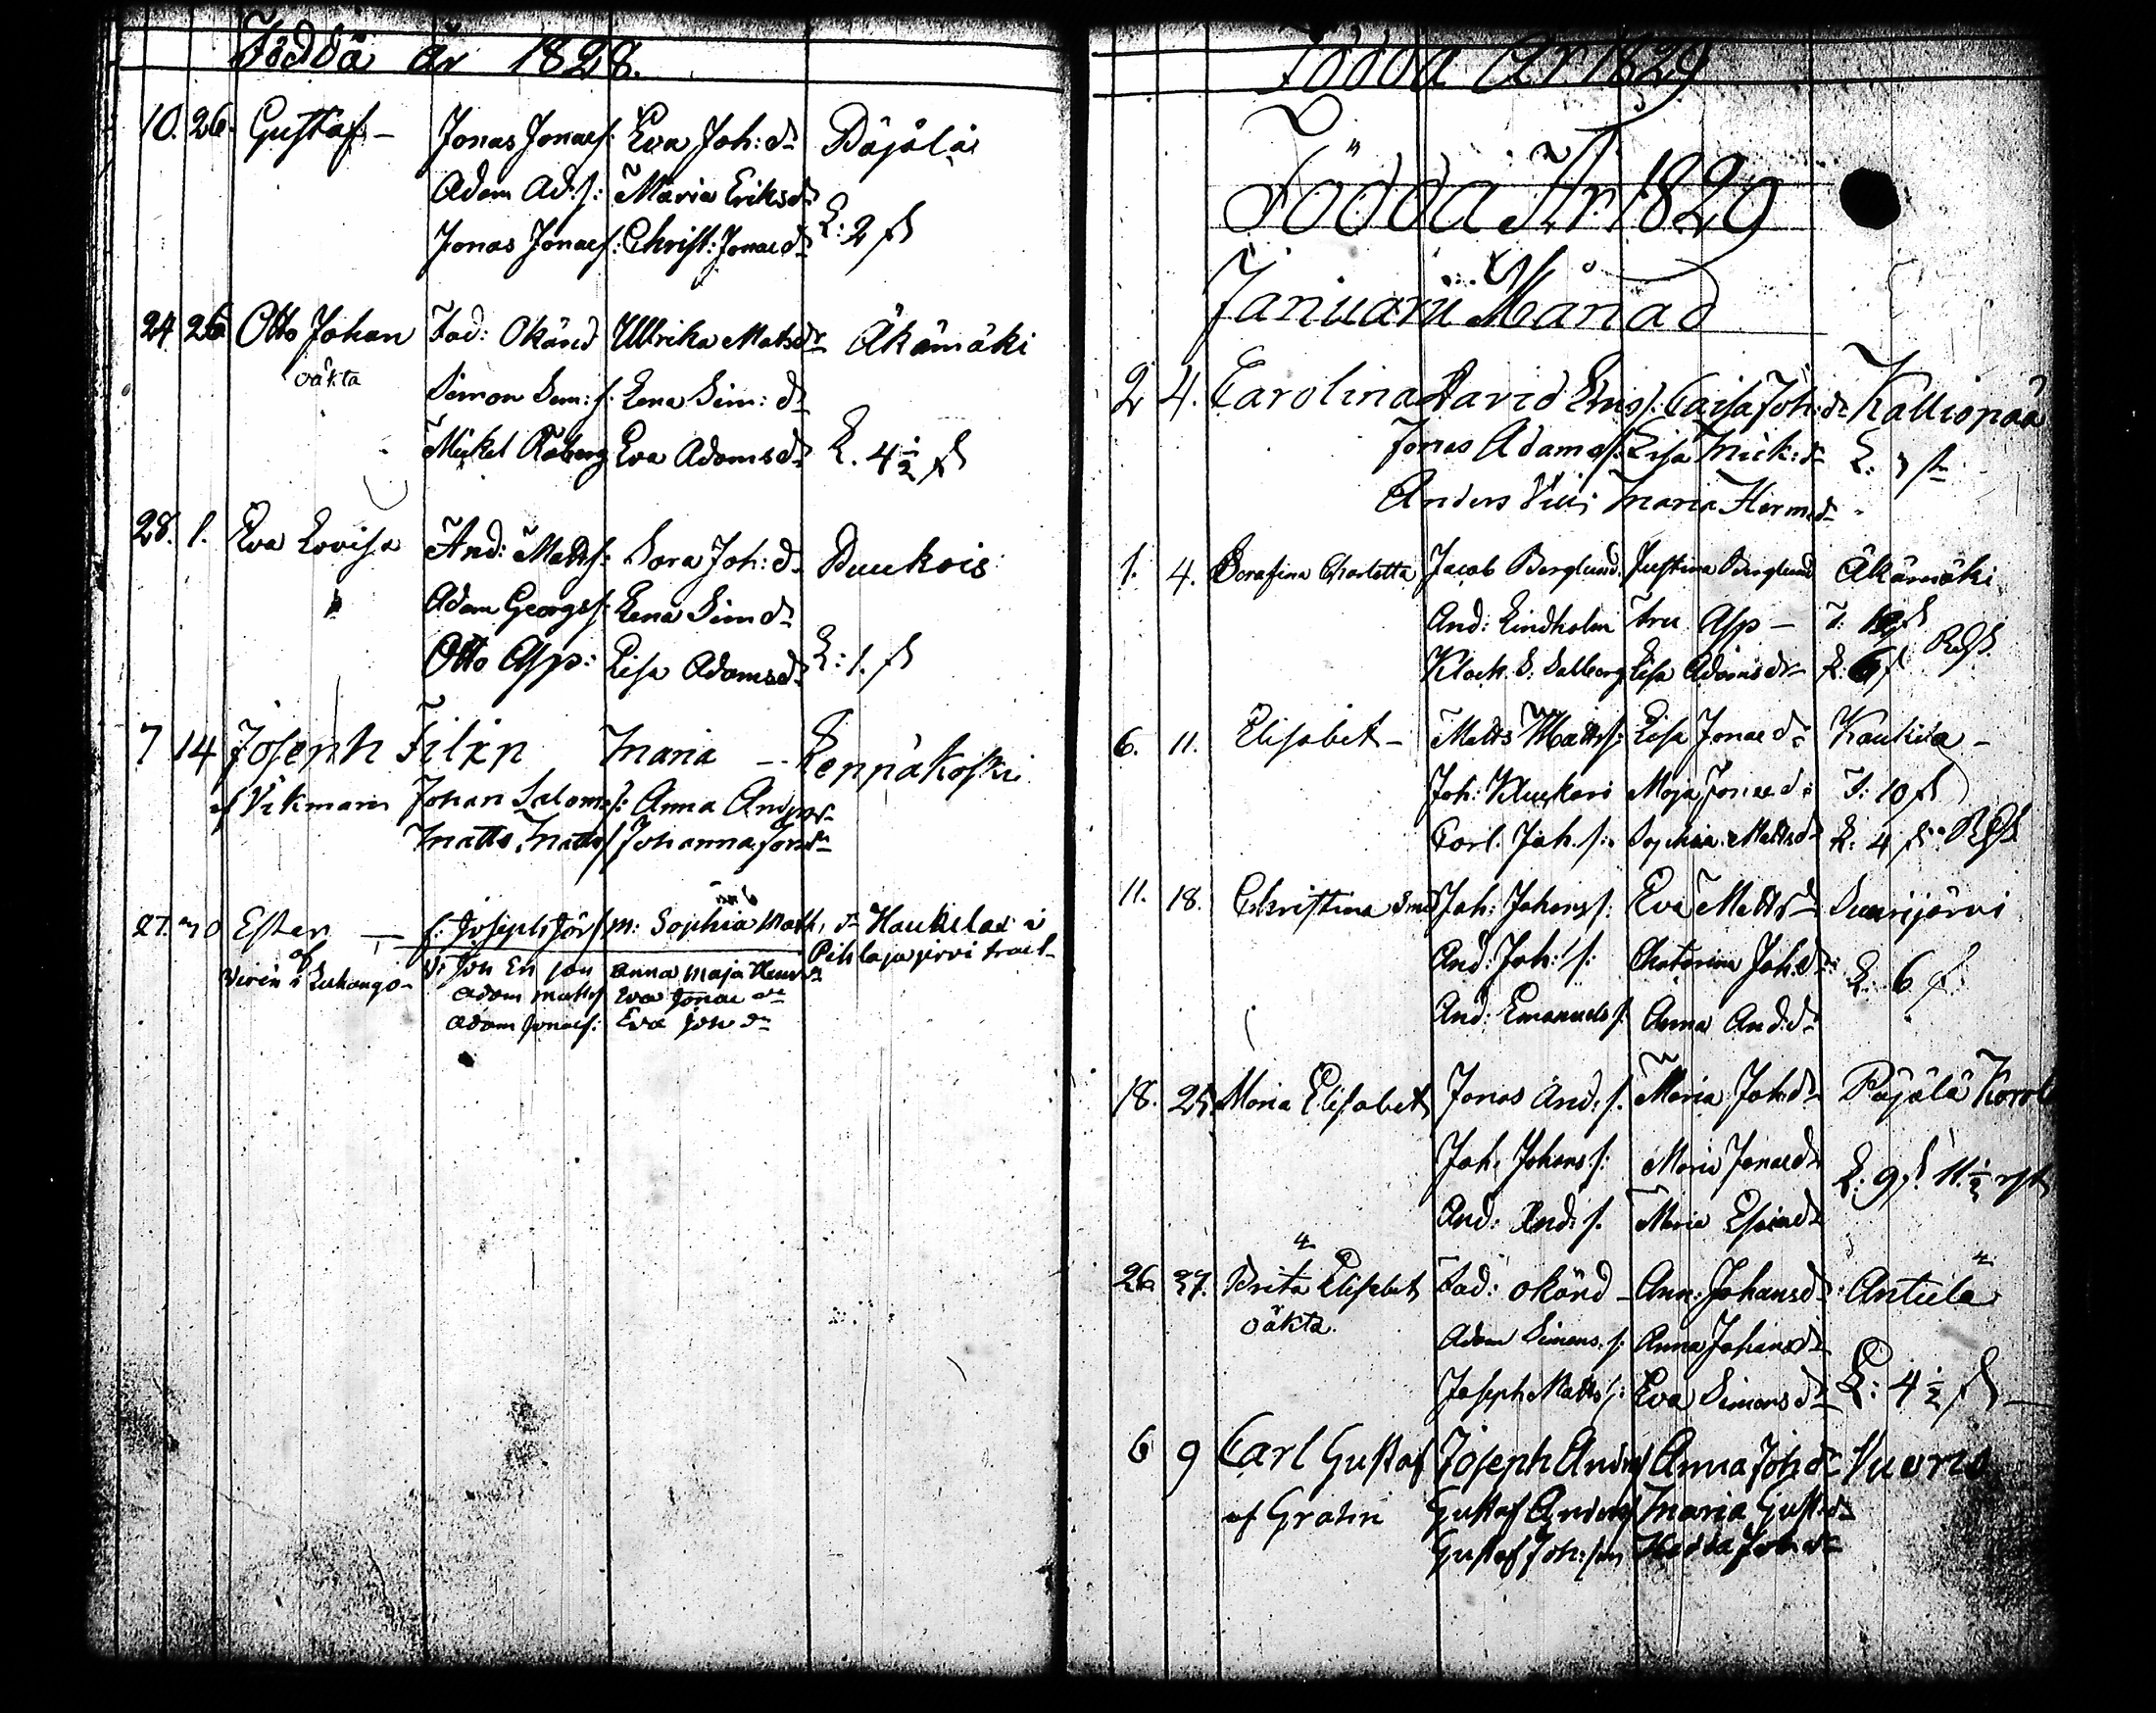 Födda år 1828.
10. 26. Gustaf – Jonas Jonaes: Eva Joh: dr Päjälä
Adam Ad: s: Maria Eriksdr
Jonas Jonaes: Christ: Jonaedr L: 2 fl
24 26 Otto Johan Fad: Okänd Ullrika Matsdr Äkämäki
oäkta Simon Sim: s: Lena Sim: dr
Mickel Eva Adamsdr L. 4½ fl
28. 1. Eva Lovisa And: Matts: Sara Joh: dr Duukois
Adam Georgs: Lena Sim dr
Otto Asp: Lisa Adamsdr L: 1. fl
7 14 Joseph Filip Maria –
af Vikmann Johan Saloms: Anna
Matts Matts Johanna
27. 30 Ester — f: Joseph m: Sophia Math. dr Haukilax i
af Pihlajajervi
V: Joh En Anna Maja
Adam Matts Eva Jonae dr
Adam Jonaes: Eva Joh dr
Födda År 1829
Födda År 1829
Januarii Månad
2 4. Carolina David Ems: Caisa Joh: dr Kalliopää
Jonas Adams: Lisa Mick: dr L:
Anders Maria Hermdr
1. 4. Serafina Charlotta Jacob Berglund. Justina Berglund Äkämäki
And: Lindholm Fru Asp –
Klock. S: Salberg Lisa Adamsdr L: 6 fl
6. 11. Elisabet – Matts Matts: Lisa Jonae dr Kaukila –
Joh: Kluukari Maja Jonae dr T: 10 fl
Carl. Joh. s: Sophia Mattsdr L: 4 fl
11. 18. Christina Joh: Johans: Eva Mattsdr Saarijärvi
And: Joh: s: Chatarina Joh: dr L: 6 fl
And: Emanuels: Anna And: dr
18. 25 Maria Elisabet Jonas And: s. Maria Joh: dr Päjälä
Joh: Johans: s: Maria Jonaedr L: 9 fl 11.½
And: And: s. Maria Esaiaedr
26. 27. Brita Elisabet Fad: okänd – Ann: Johansdr Antiela
oäkta. Adam Simons. s: Anna Johansdr
Joseph Matts: Eva Simonsdr L: 4½ fl
6 9 Carl Gustaf Joseph Anders Anna Joh dr Vuorio
af Grahn Gustaf Anders Maria Gustdr
Gustaf Joh: son Hedda Joh dr